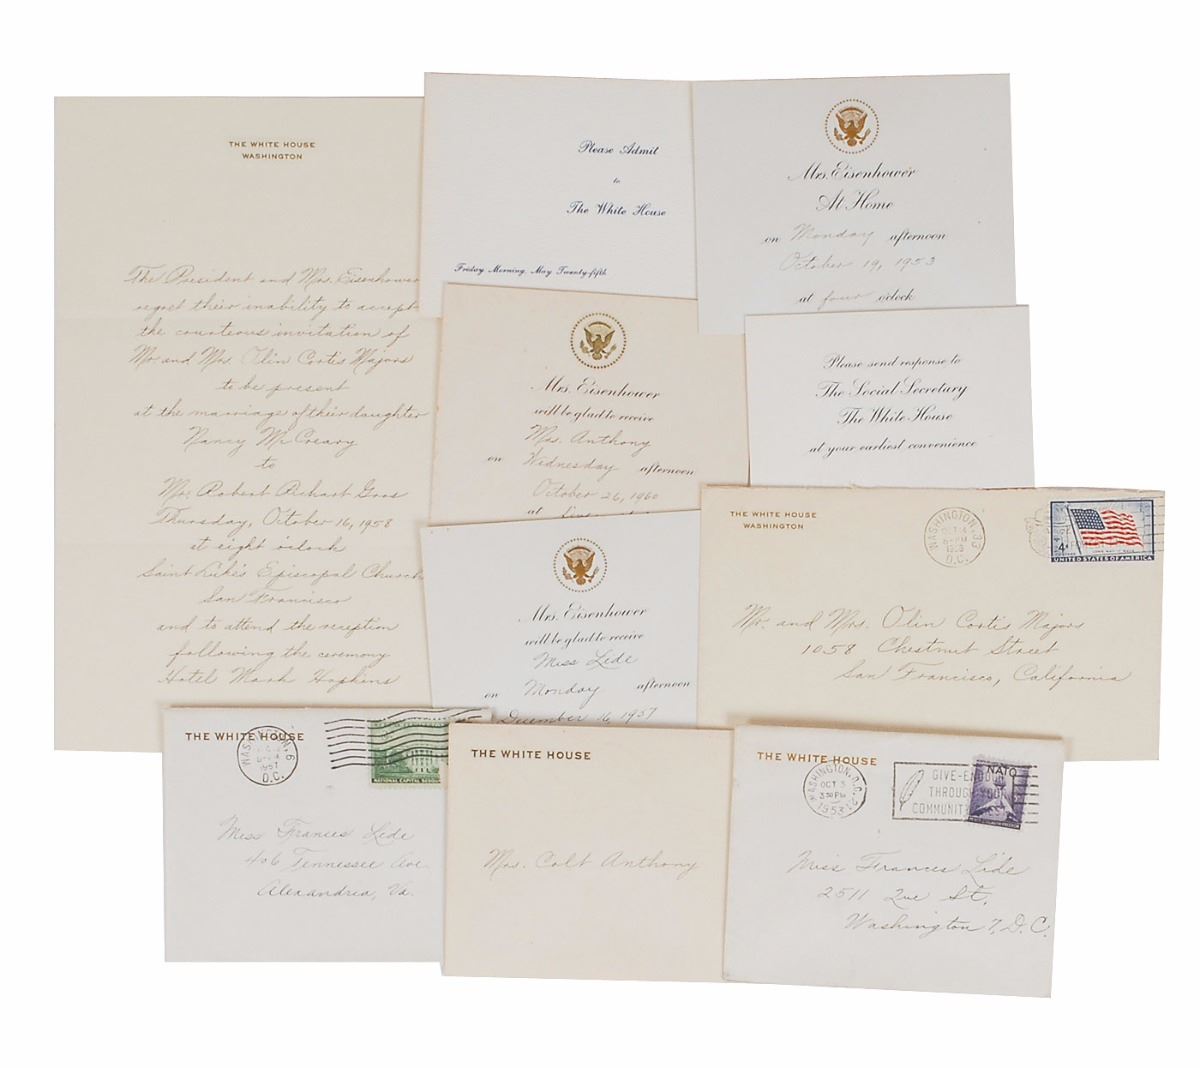 THE WHITE HOUSE
WASHINGTON
The President and Mrs. Eisenhower
regret their inability to accept
the courteous invitation of
Mr. and Mrs. Olin Cortis Majors
to be present
at the marriage of their daughter
Nancy McCreary
to
Mr. Robert Richart Gros
Thursday, October 16, 1958
at eight o'clock
Saint Luke's Episcopal Church
San Francisco
and to attend the reception
following the ceremony
Hotel Mark Hopkins
Please Admit
to
The White House
Friday Morning, May Twenty-fifth
Mrs. Eisenhower
At Home
on Monday afternoon
October 19, 1953
at four o'clock
Mrs. Eisenhower
will be glad to receive
Mrs. Anthony
on Wednesday afternoon
October 26, 1960
at
Please send response to
The Social Secretary
The White House
at your earliest convenience
Mrs. Eisenhower
will be glad to receive
Miss Lide
on Monday afternoon
December 16, 1957
THE WHITE HOUSE
WASHINGTON
WASHINGTON,
OCT 4
PM
1958
D.C.
4¢
UNITED STATES OF AMERICA
Mr. and Mrs. Olin Cortis Majors
1058 Chestnut Street
San Francisco, California
THE WHITE HOUSE
WASHINGTON, 6
1957
D.C.
NATIONAL CAPITAL SESQUI
Miss Frances Lide
406 Tennessee Ave.
Alexandria, Va.
THE WHITE HOUSE
Mrs. Colt Anthony
THE WHITE HOUSE
WASHINGTON, D.C.
OCT 5
3 30 PM
1953
GIVE-ENOUGH
THROUGH YOUR
COMMUNITY
NATO
Miss Frances Lide
2511 Que St.
Washington 7, D.C.